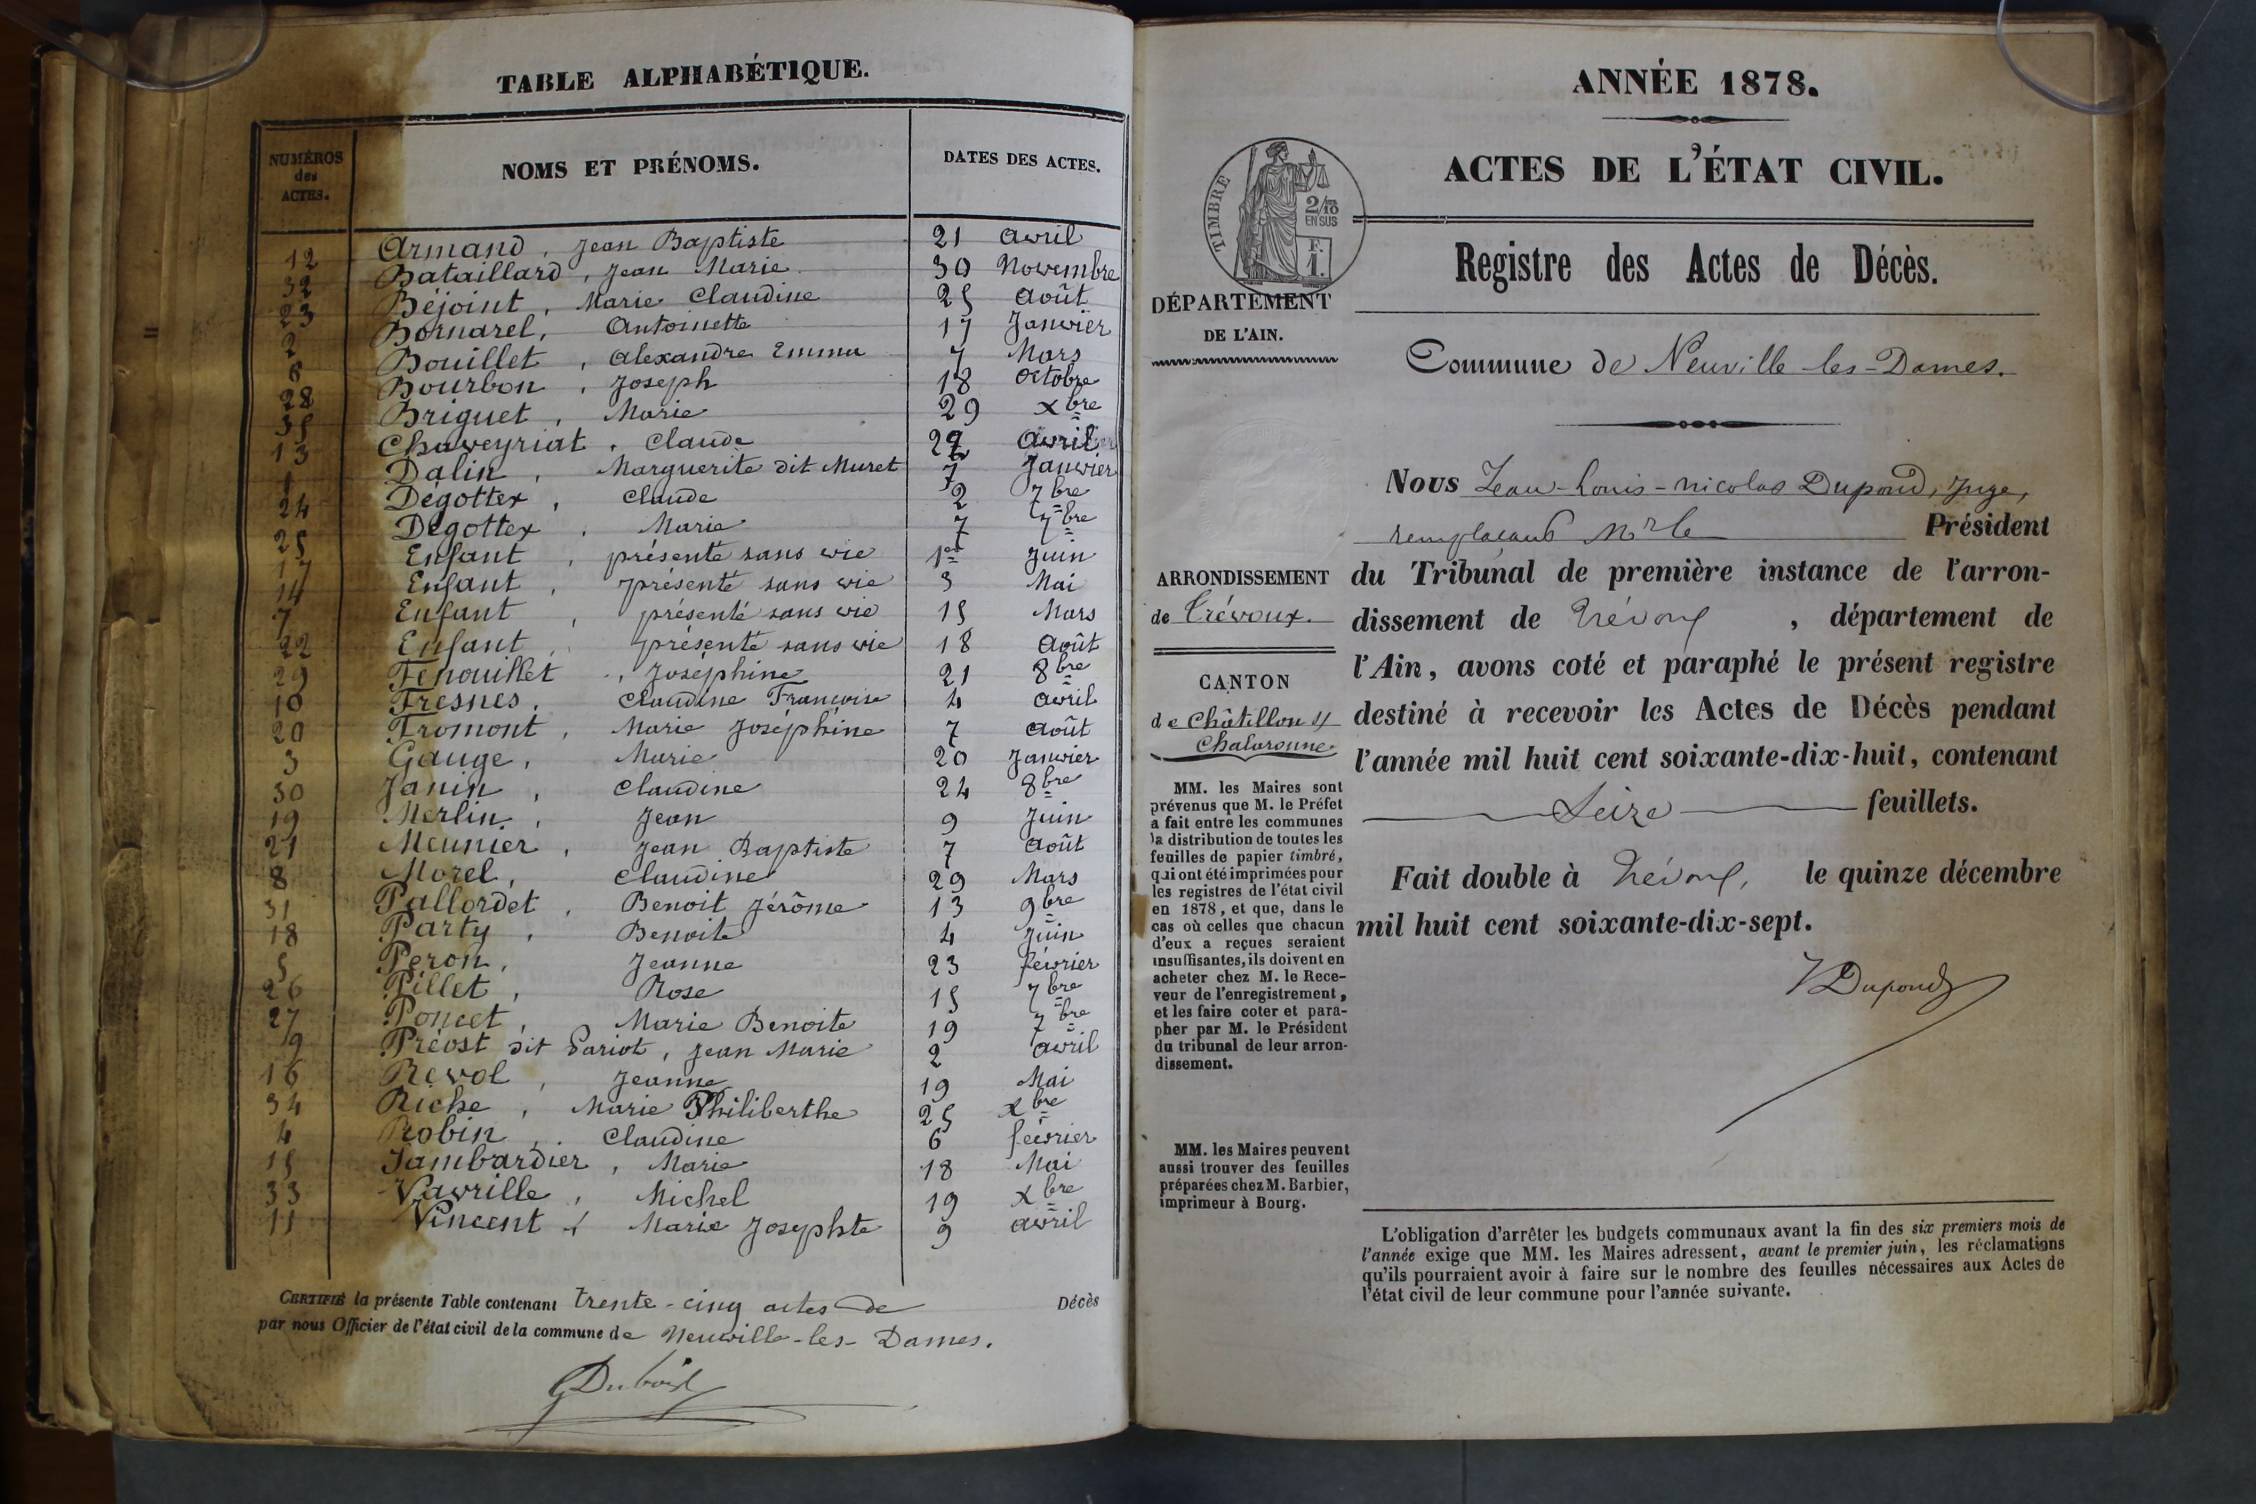 TABLE ALPHABÉTIQUE.
NUMÉROS des ACTES. NOMS ET PRÉNOMS. DATES DES ACTES.
12 Armand, Jean Baptiste 21 avril
32 Bataillard, Jean Marie 30 Novembre
23 Béjoint, Marie Claudine 25 août
2 Bornarel, Antoinette 17 Janvier
6 Bouillet, Alexandre Emma 7 Mars
28 Bourbon, Joseph 18 octobre
35 Briguet, Marie 29 xbre
13 Chaveyriat, Claude avril
1 Dalin, Marguerite dit Muret 7 Janvier
24 Dégottex, Claude 2 7bre
25 Dégottex, Marie 7 7bre
17 Enfant, présenté sans vie 1er Juin
14 Enfant, présenté sans vie 3 Mai
7 Enfant, présenté sans vie 15 Mars
22 Enfant, présenté sans vie 18 Août
29 Fenouillet, Joséphine 21 8bre
10 Fresnes, Claudine Françoise 4 avril
20 Fromont, Marie Joséphine 7 août
3 Gauge, Marie 20 Janvier
30 Janin, Claudine 24 8bre
19 Merlin, Jean 9 Juin
21 Meunier, Jean Baptiste 7 août
8 Morel, Claudine 29 Mars
31 Pallordet, Benoit Jérôme 13 9bre
18 Party, Benoite 4 Juin
5 Peron, Jeanne 23 février
26 Pillet, Rose 15 7bre
27 Poncet, Marie Benoite 19 7bre
9 Préost dit Pariot, Jean Marie 2 avril
16 Revol, Jeanne 19 Mai
34 Riche, Marie Philiberthe 25 xbre
4 Robin, Claudine 6 février
15 Sambardier, Marie 18 Mai
33 Vavrille, Michel 19 xbre
11 Vincent, Marie Josephte 9 avril
CERTIFIÉ la présente Table contenant trente-cinq actes de Décès
par nous Officier de l'état civil de la commune de Neuville-les-Dames.
ANNÉE 1878.
ACTES DE L'ÉTAT CIVIL.
TIMBRE
2/10
EN SUS
F.
1.
Registre des Actes de Décès.
DÉPARTEMENT
DE L'AIN.
Commune de Neuville-les-Dames.
Nous Jean-Louis-Nicolas Dupond, Juge,
remplaçant Mr le Président
du Tribunal de première instance de l'arron-
dissement de Trévoux, département de
l'Ain, avons coté et paraphé le présent registre
destiné à recevoir les Actes de Décès pendant
l'année mil huit cent soixante-dix-huit, contenant
Seize feuillets.
Fait double à Trévoux, le quinze décembre
mil huit cent soixante-dix-sept.
Dupond
ARRONDISSEMENT
de Trévoux.
CANTON
de Châtillon s/
Chalaronne
MM. les Maires sont
prévenus que M. le Préfet
a fait entre les communes
la distribution de toutes les
feuilles de papier timbré,
qui ont été imprimées pour
les registres de l'état civil
en 1878, et que, dans le
cas où celles que chacun
d'eux a reçues seraient
insuffisantes, ils doivent en
acheter chez M. le Rece-
veur de l'enregistrement,
et les faire coter et para-
pher par M. le Président
du tribunal de leur arron-
dissement.
MM. les Maires peuvent
aussi trouver des feuilles
préparées chez M. Barbier,
imprimeur à Bourg.
L'obligation d'arrêter les budgets communaux avant la fin des six premiers mois de
l'année exige que MM. les Maires adressent, avant le premier juin, les réclamations
qu'ils pourraient avoir à faire sur le nombre des feuilles nécessaires aux Actes de
l'état civil de leur commune pour l'année suivante.